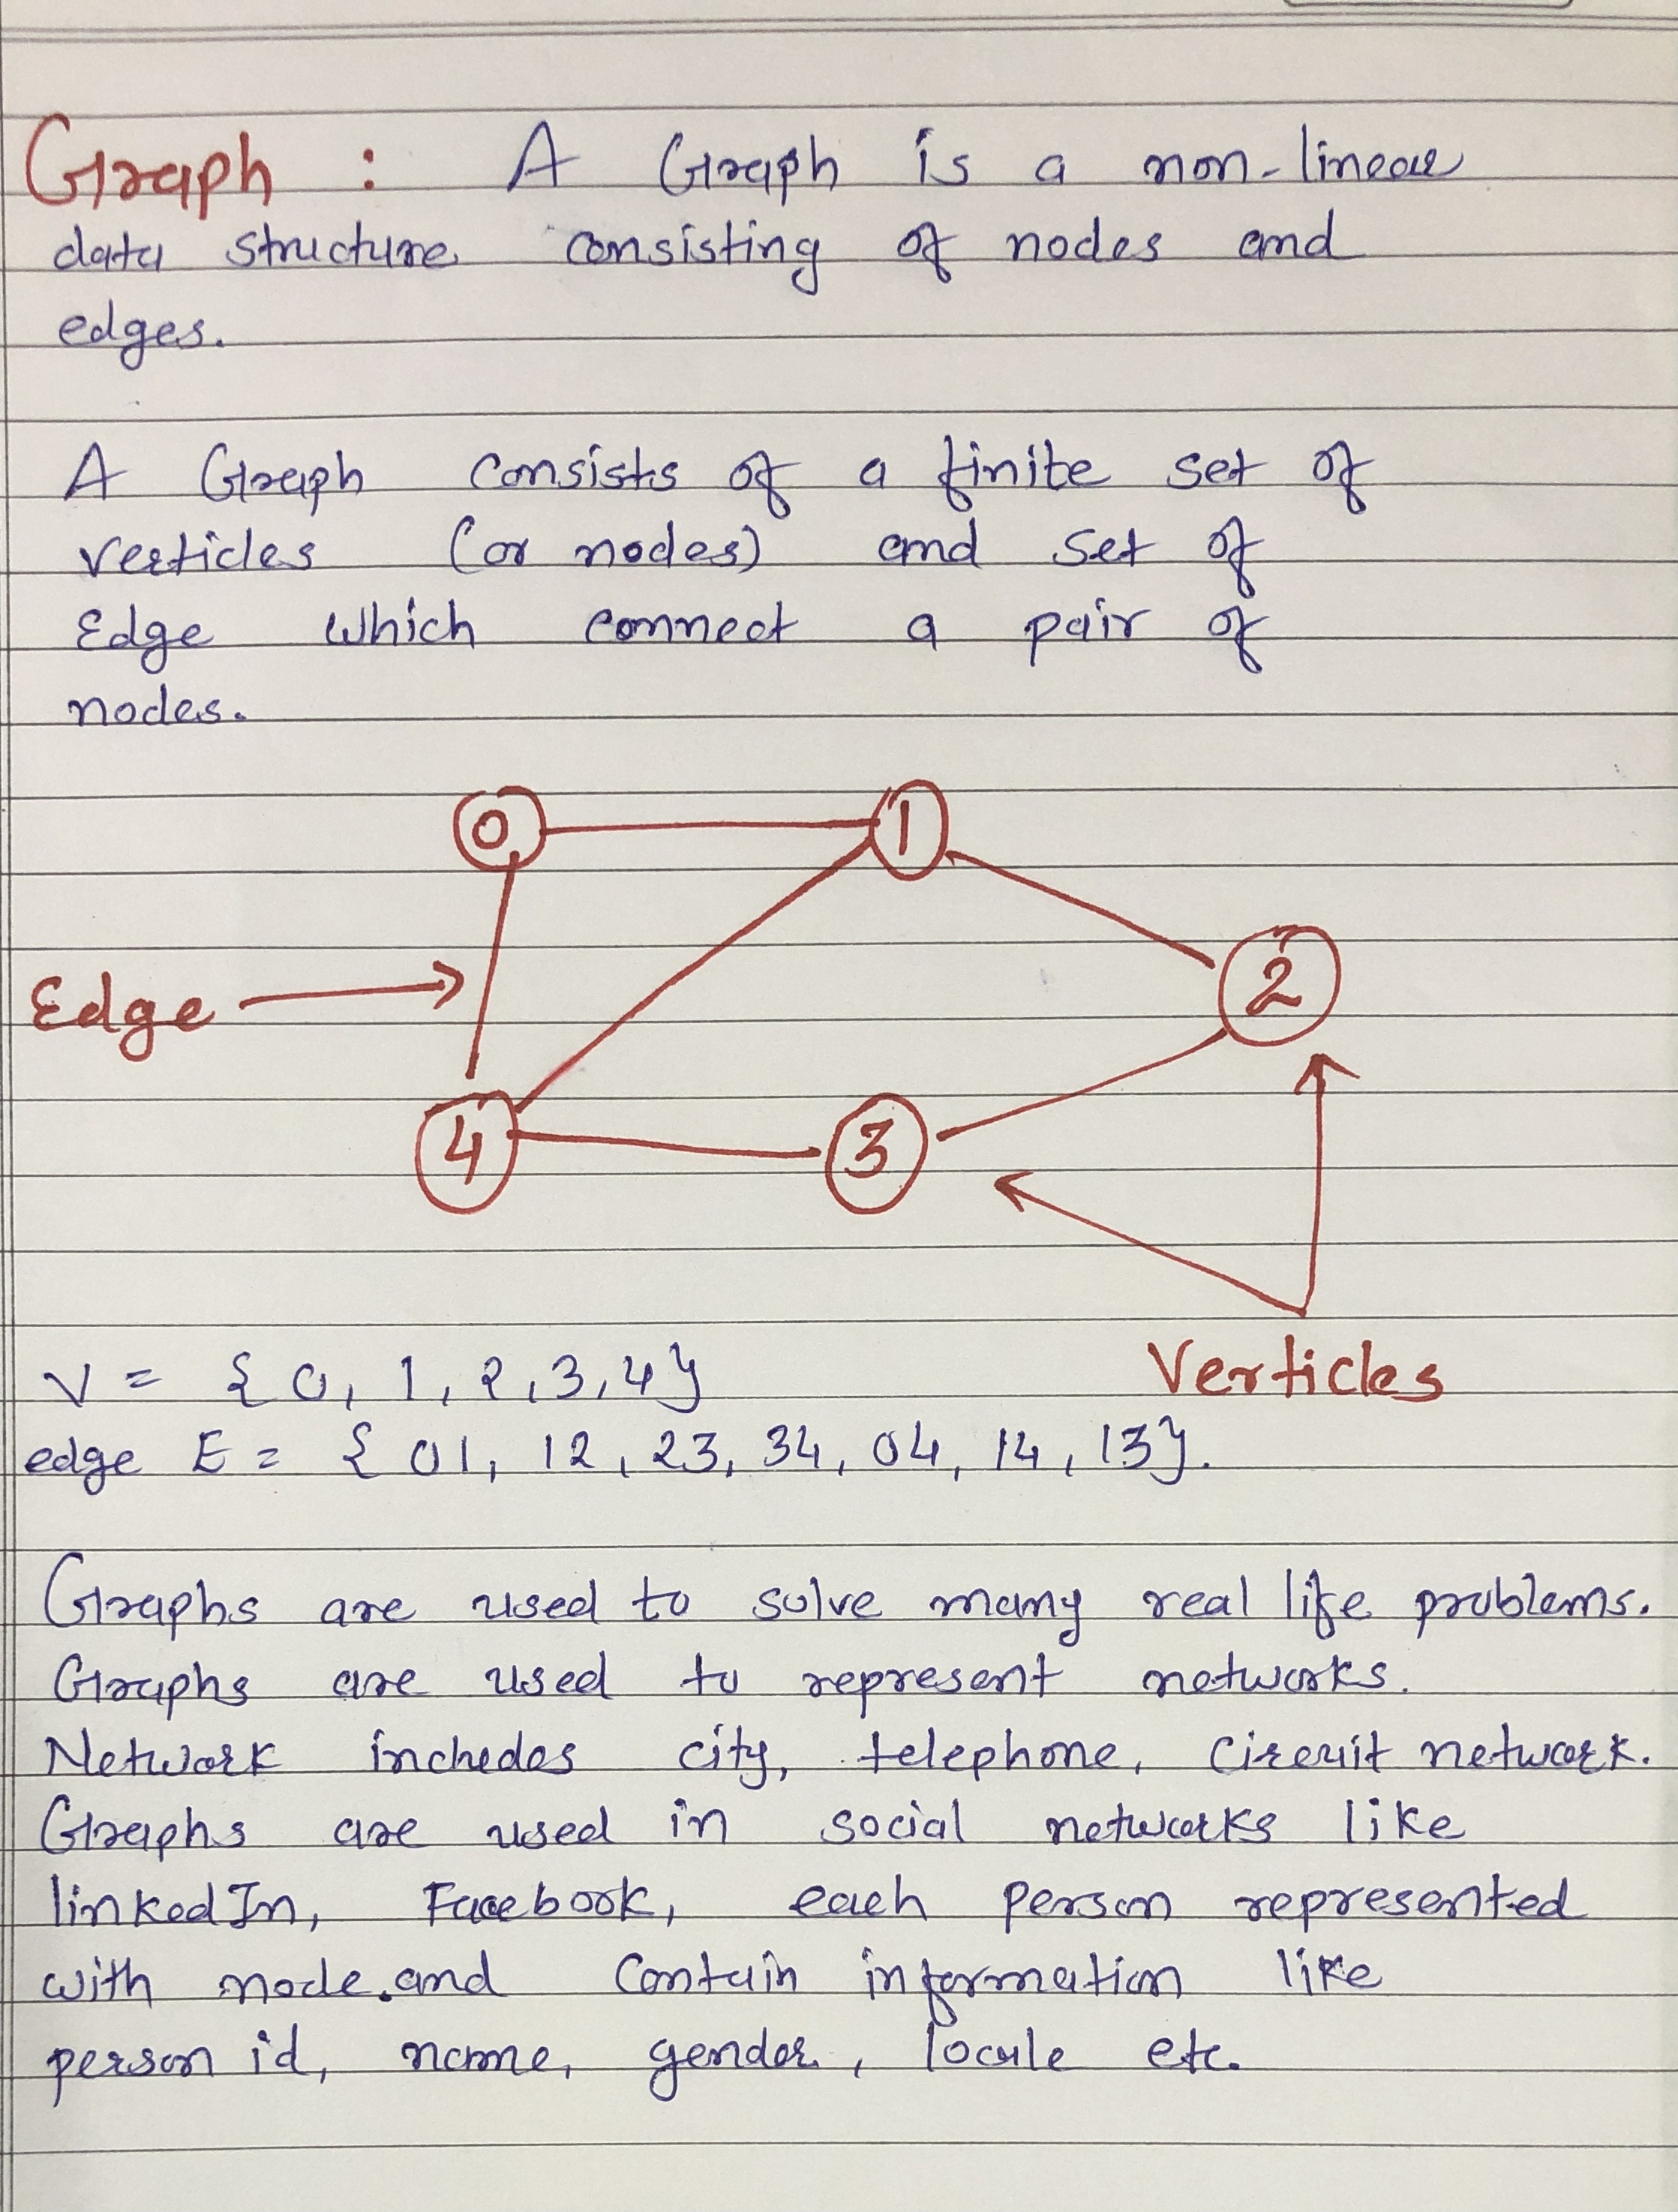 Graph : A Graph is a non-linear
data structure consisting of nodes and
edges.
A Graph consists of a finite set of
verticles (or nodes) and set of
Edge which connect a pair of
nodes.
0 1
2
Edge
4 3
Verticles
V = {0, 1, 2, 3, 4}
edge E = {01, 12, 23, 34, 04, 14, 13}.
Graphs are used to solve many real life problems.
Graphs are used to represent networks.
Network includes city, telephone, circuit network.
Graphs are used in social networks like
linkedIn, Facebook, each person represented
with node.and contain information like
person id, name, gender, locale etc.